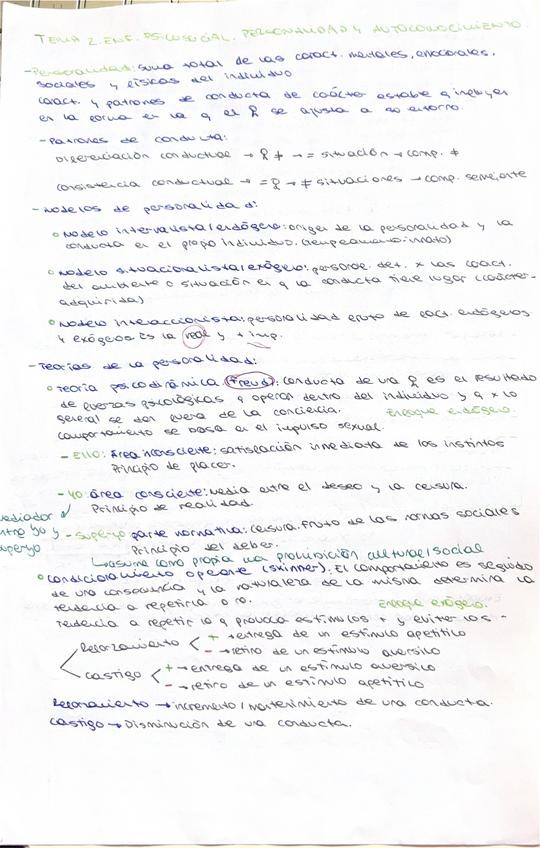 TEMA 2. ENF. PSICOSOCIAL. PERSONALIDAD Y AUTOCONOCIMIENTO.
-Personalidad: suma total de las caract. mentales, emocionales,
sociales y físicas del individuo
caract. y patrones de conducta de carácter estable q influyen
en la forma en la q el ♀ se ajusta a su entorno.
- Patrones de conducta:
Diferenciación conductual → ♀ ≠ → = situación → comp. ≠
consistencia conductual → = ♀ → ≠ situaciones → comp. semejante
- Modelos de personalidad:
o Modelo internalista/endógeno: origen de la personalidad y la
conducta en el propio individuo. (temperamento-innato)
o Modelo situacionalista/exógeno: personae. det. x las caract.
del ambiente o situación en q la conducta tiene lugar (carácter-
adquirida)
o Modelo interaccionista: personalidad fruto de fact. endógenos
y exógenos es la real y + imp.
- Teorías de la personalidad:
o Teoría psicodinámica (Freud): conducta de una ♀ es el resultado
de fuerzas psicológicas q operan dentro del individuo y q x lo
general se dan fuera de la conciencia. Enfoque endógeno.
comportamiento se basa en el impulso sexual.
- ELLO: Área inconsciente: satisfacción inmediata de los instintos
Principio de placer.
- YO: área consciente: media entre el deseo y la censura.
Principio de realidad.
mediador
entre yo y
superyo
- Superyo: parte normativa: censura. Fruto de las normas sociales
Principio del deber.
↳ asume como propia una prohibición cultural/social
o Condicionamiento operante (Skinner). El comportamiento es seguido
de una consecuencia y la naturaleza de la misma determina la
tendencia a repetirla o no. Enfoque exógeno.
Tendencia a repetir lo q provoca estímulos + y evitar los -
Reforzamiento < + → entrega de un estímulo apetitico
- → retiro de un estímulo aversico
castigo < + → entrega de un estímulo aversico
- → retiro de un estímulo apetitico
Reforzamiento → incremento/mantenimiento de una conducta.
castigo → Disminución de una conducta.